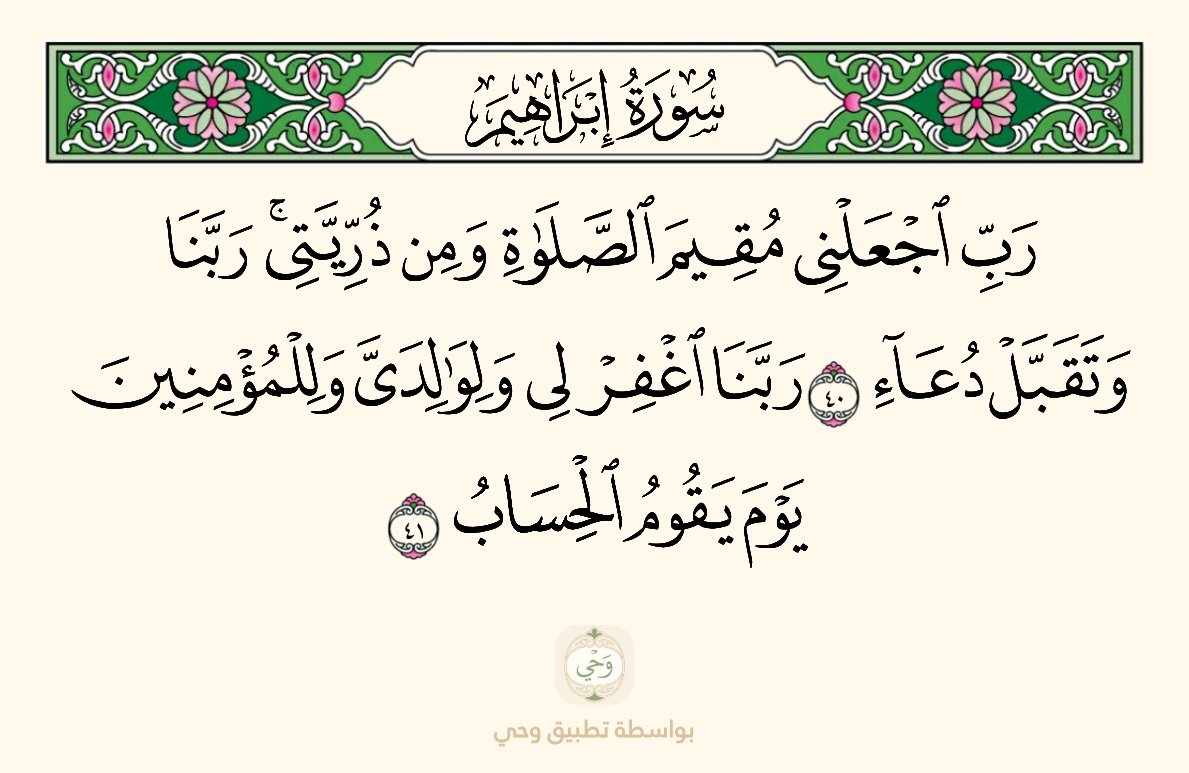 سُورَةُ إِبْرَاهِيمَ
رَبِّ ٱجْعَلْنِى مُقِيمَ ٱلصَّلَوٰةِ وَمِن ذُرِّيَّتِى ۚ رَبَّنَا
وَتَقَبَّلْ دُعَآءِ ٤٠ رَبَّنَا ٱغْفِرْ لِى وَلِوَٰلِدَىَّ وَلِلْمُؤْمِنِينَ
يَوْمَ يَقُومُ ٱلْحِسَابُ ٤١
وَحْي
بواسطة تطبيق وحي